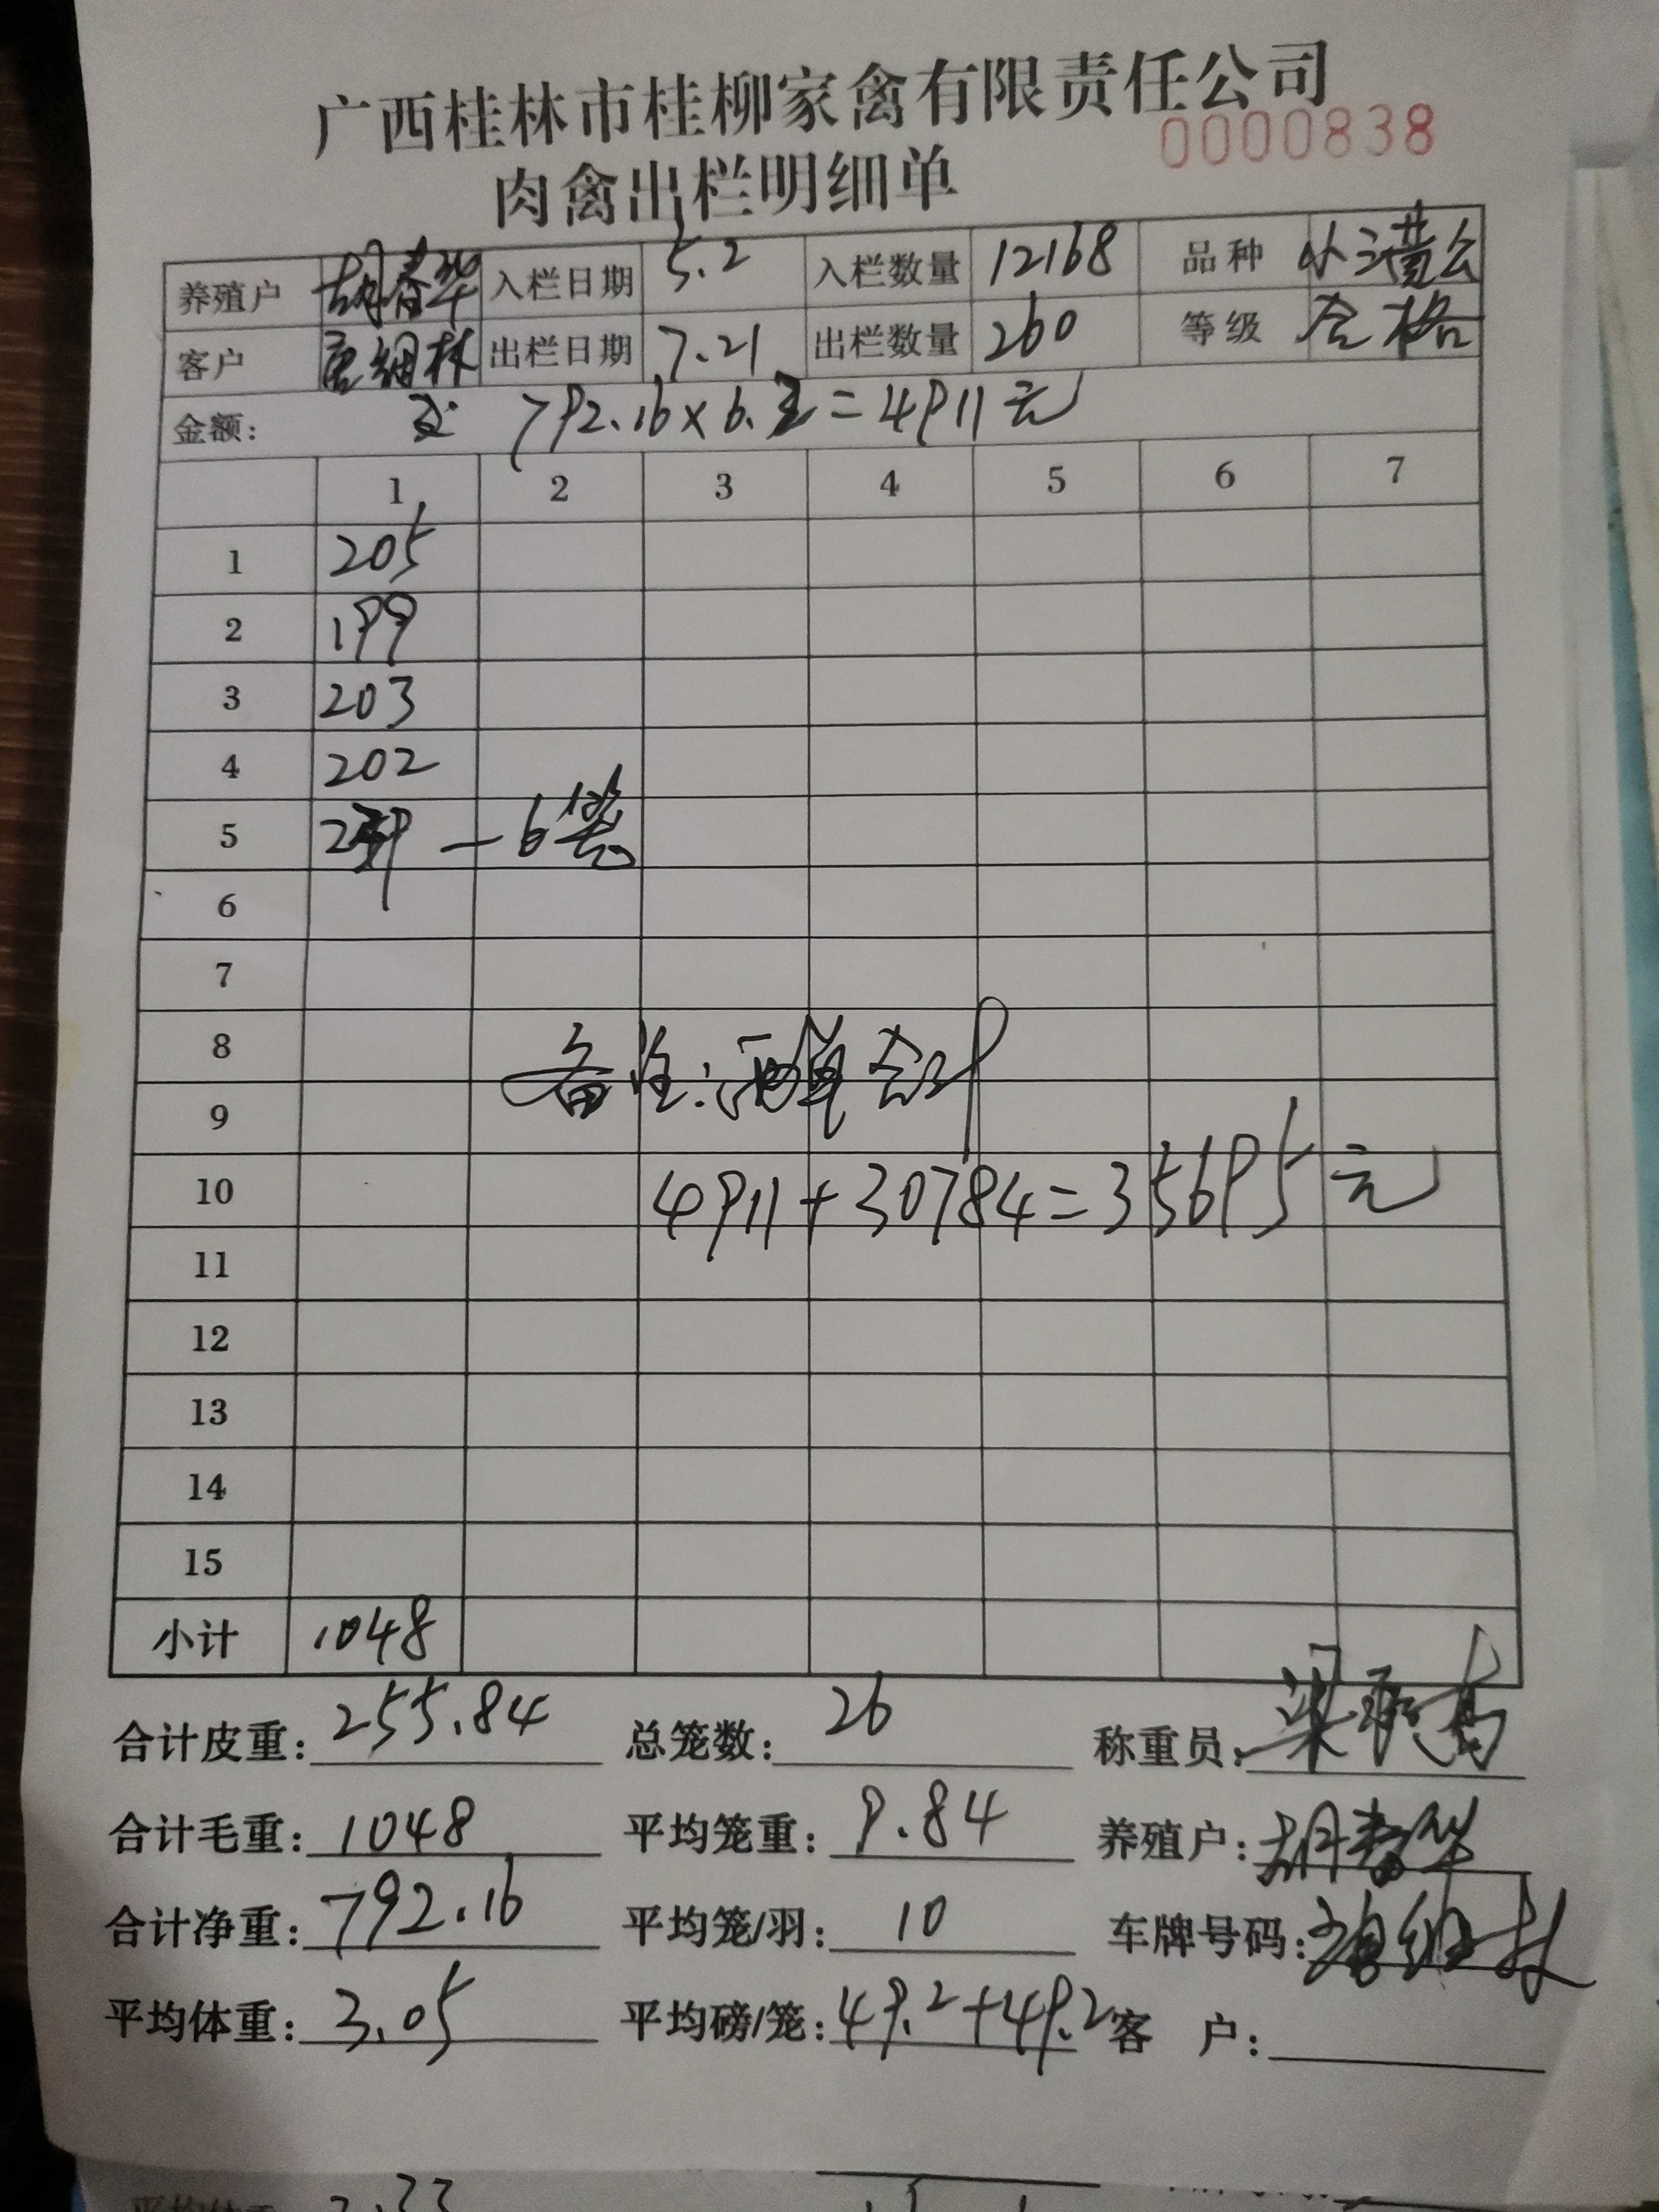 广西桂林市桂柳家禽有限责任公司
0000838
肉禽出栏明细单
养殖户 胡春华 入栏日期 5.2 入栏数量 12168 品种 小三黄公
客户 出栏日期 7.21 出栏数量 260 等级 合格
金额: 792.16×6.2=4911元
1 2 3 4 5 6 7
1 205
2 199
3 203
4 202
5 239 — 6笼
6
7
8
备注:两单合计
9
10 4911+30784=35695元
11
12
13
14
15
小计 1048
合计皮重: 255.84 总笼数: 26 称重员:
合计毛重: 1048 平均笼重: 9.84 养殖户: 胡春华
合计净重: 792.16 平均笼/羽: 10 车牌号码:
平均体重: 3.05 平均磅/笼: 49.2+49.2 客 户: